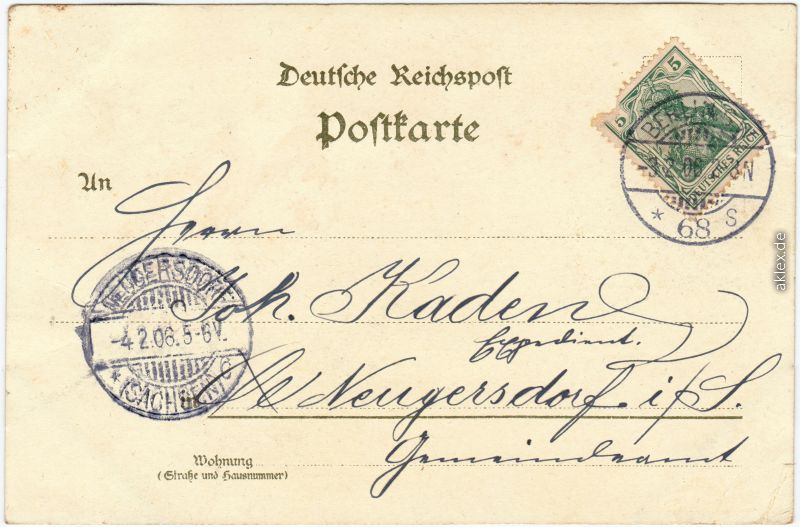 Deutsche Reichspost
Postkarte
An
Herrn
Joh. Kaden
Expedient.
Neugersdorf i/S.
Gemeindeamt
Wohnung
(Straße und Hausnummer)
5
5
DEUTSCHES REICH
BERLIN
* 68 S
NEUGERSDORF
-4.2.06.5-6V.
* (SACHSEN)
aklex.de